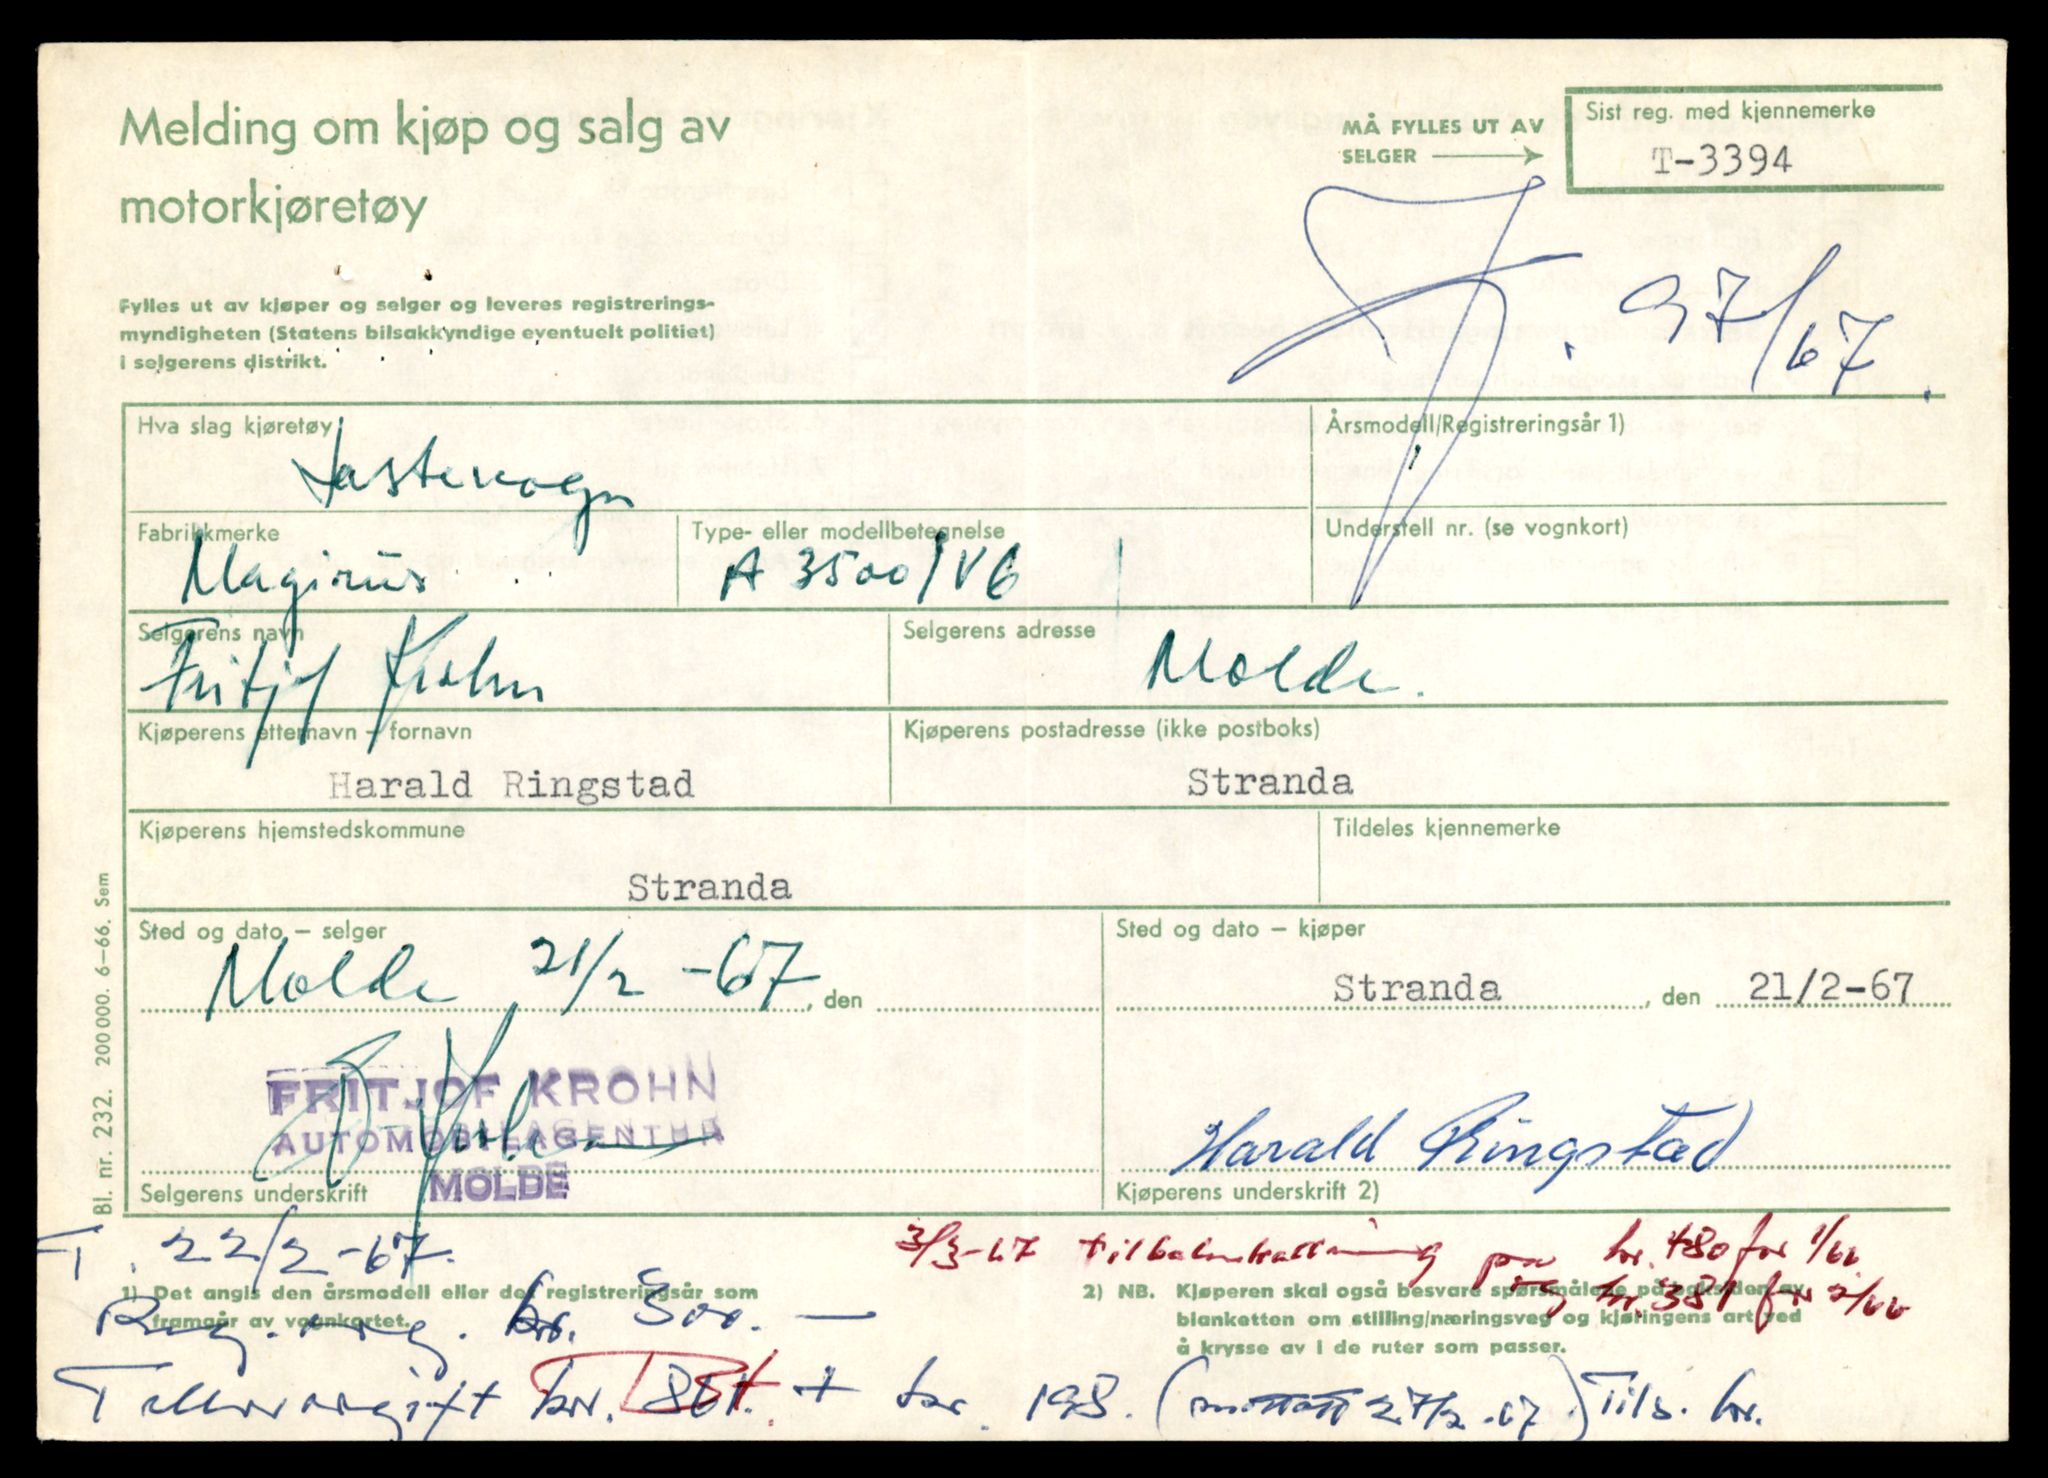 Melding om kjøp og salg av
motorkjøretøy
MÅ FYLLES UT AV
SELGER
Sist reg. med kjennemerke
T-3394
97/67
Fylles ut av kjøper og selger og leveres registrerings-
myndigheten (Statens bilsakkyndige eventuelt politiet)
i selgerens distrikt.
Hva slag kjøretøy
Lastevogn
Årsmodell/Registreringsår 1)
Fabrikkmerke
Magirus
Type- eller modellbetegnelse
A 3500/V6
Understell nr. (se vognkort)
Selgerens navn
Fritjof Krohn
Selgerens adresse
Molde.
Kjøperens etternavn – fornavn
Harald Ringstad
Kjøperens postadresse (ikke postboks)
Stranda
Kjøperens hjemstedskommune
Stranda
Tildeles kjennemerke
Sted og dato – selger
Molde 21/2 -67, den
Sted og dato – kjøper
Stranda, den 21/2-67
FRITJOF KROHN
AUTOMOBILAGENTUR
MOLDE
Selgerens underskrift
Harald Ringstad
Kjøperens underskrift 2)
Bl. nr. 232. 200 000. 6–66. Sem
22/2-67.
3/3-67 kr. 480 for 1/66
og kr. 381 for 2/66
1) Det angis den årsmodell eller det registreringsår som
framgår av vognkortet.
Reg. avg. kr. 500. —
2) NB. Kjøperen skal også besvare spørsmålene på baksiden av
blanketten om stilling/næringsveg og kjøringens art ved
å krysse av i de ruter som passer.
kr. 861. + kr. 198. (mottatt 27/2-67) Tilb. kr.